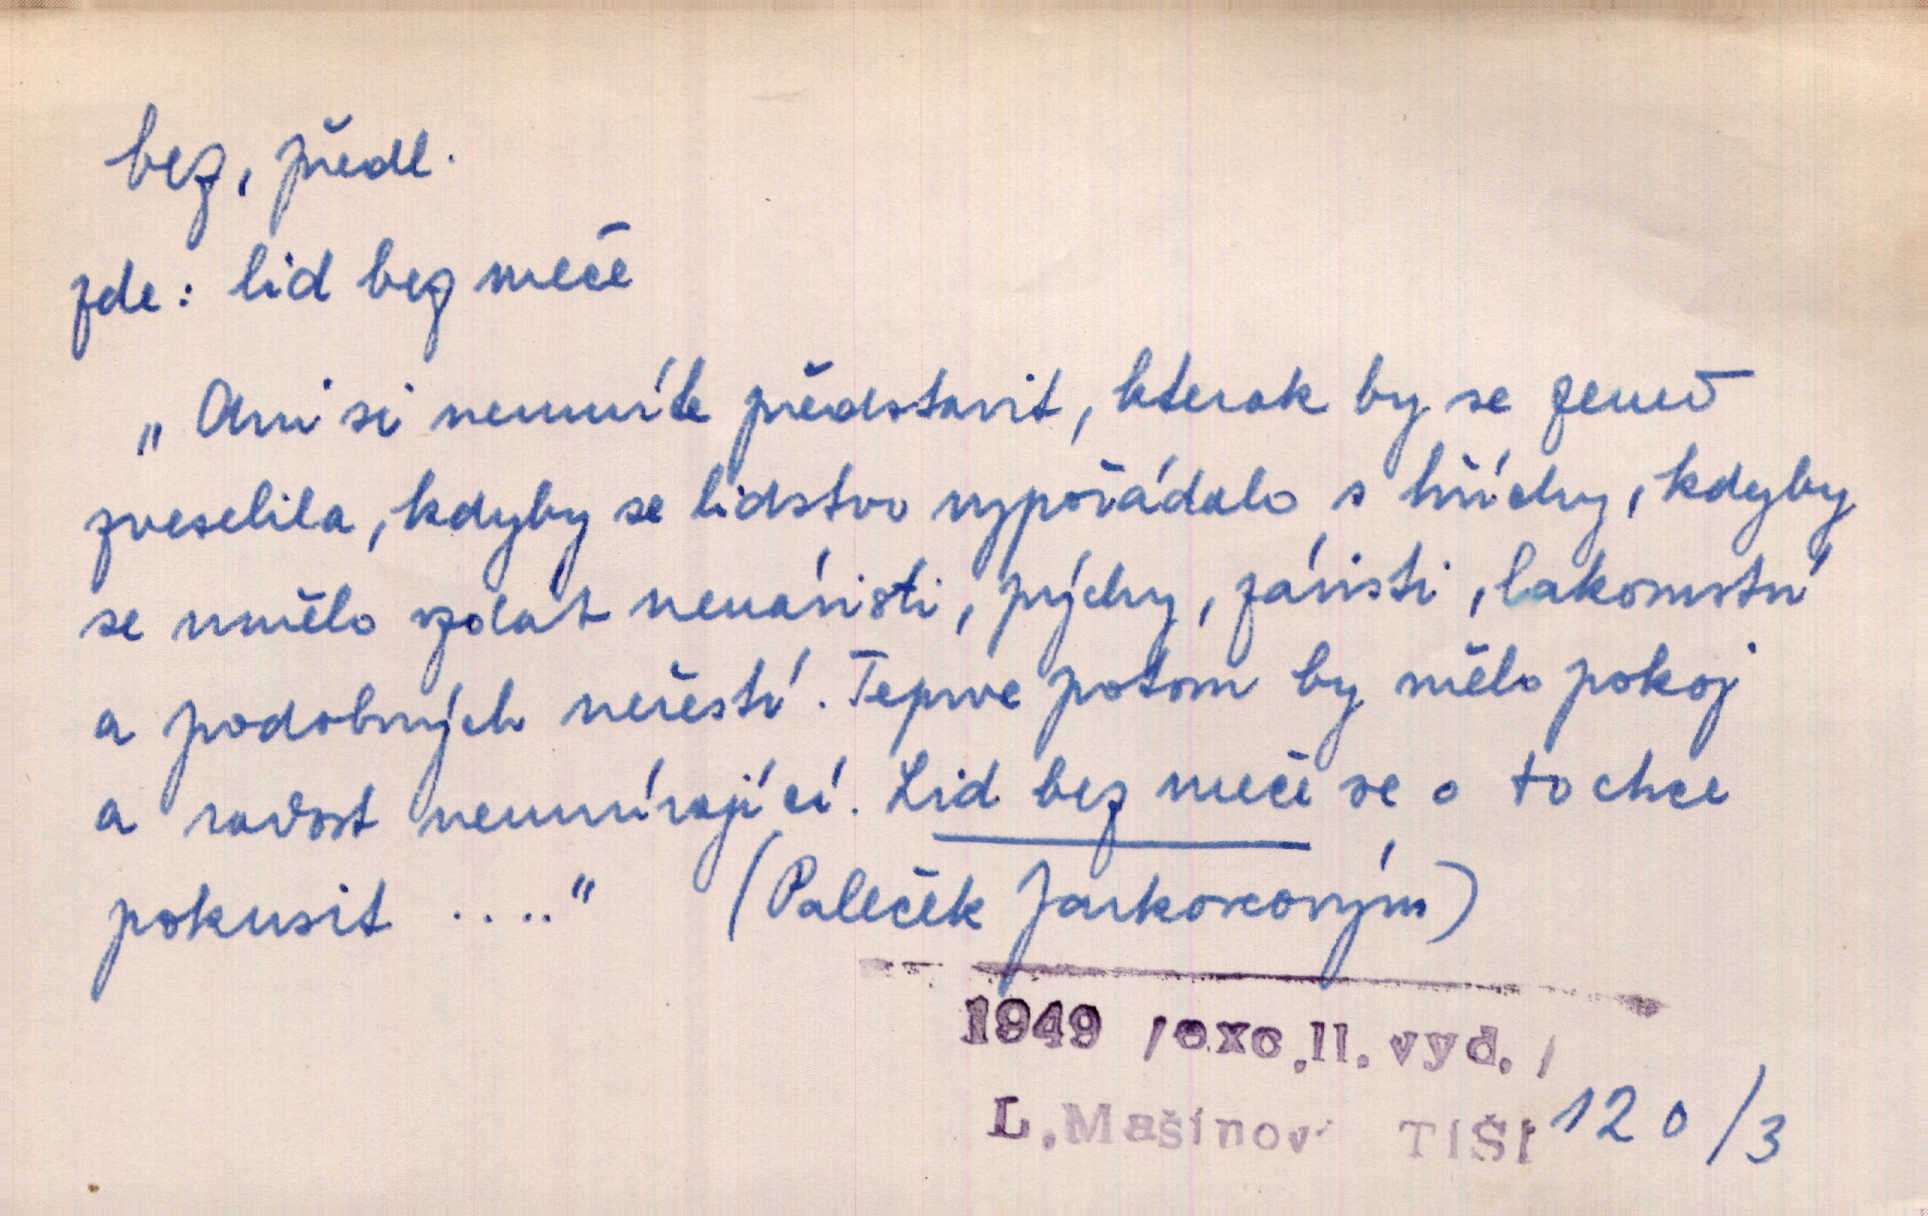 bez, předl.
zde: lid bez meče
„Ani si neumíte představit, kterak by se země
zveselila, kdyby se lidstvo vypořádalo s hříchy, kdyby
se umělo vzdát nenávisti, pýchy, závisti, lakomství
a podobných neřestí. Teprve potom by mělo pokoj
a radost neumírající. Lid bez meče se o to chce
pokusit ...." (Paleček Jankovcovým)
1949 /exc.II. vyd./
L.Mašínov TIŠI 120/3